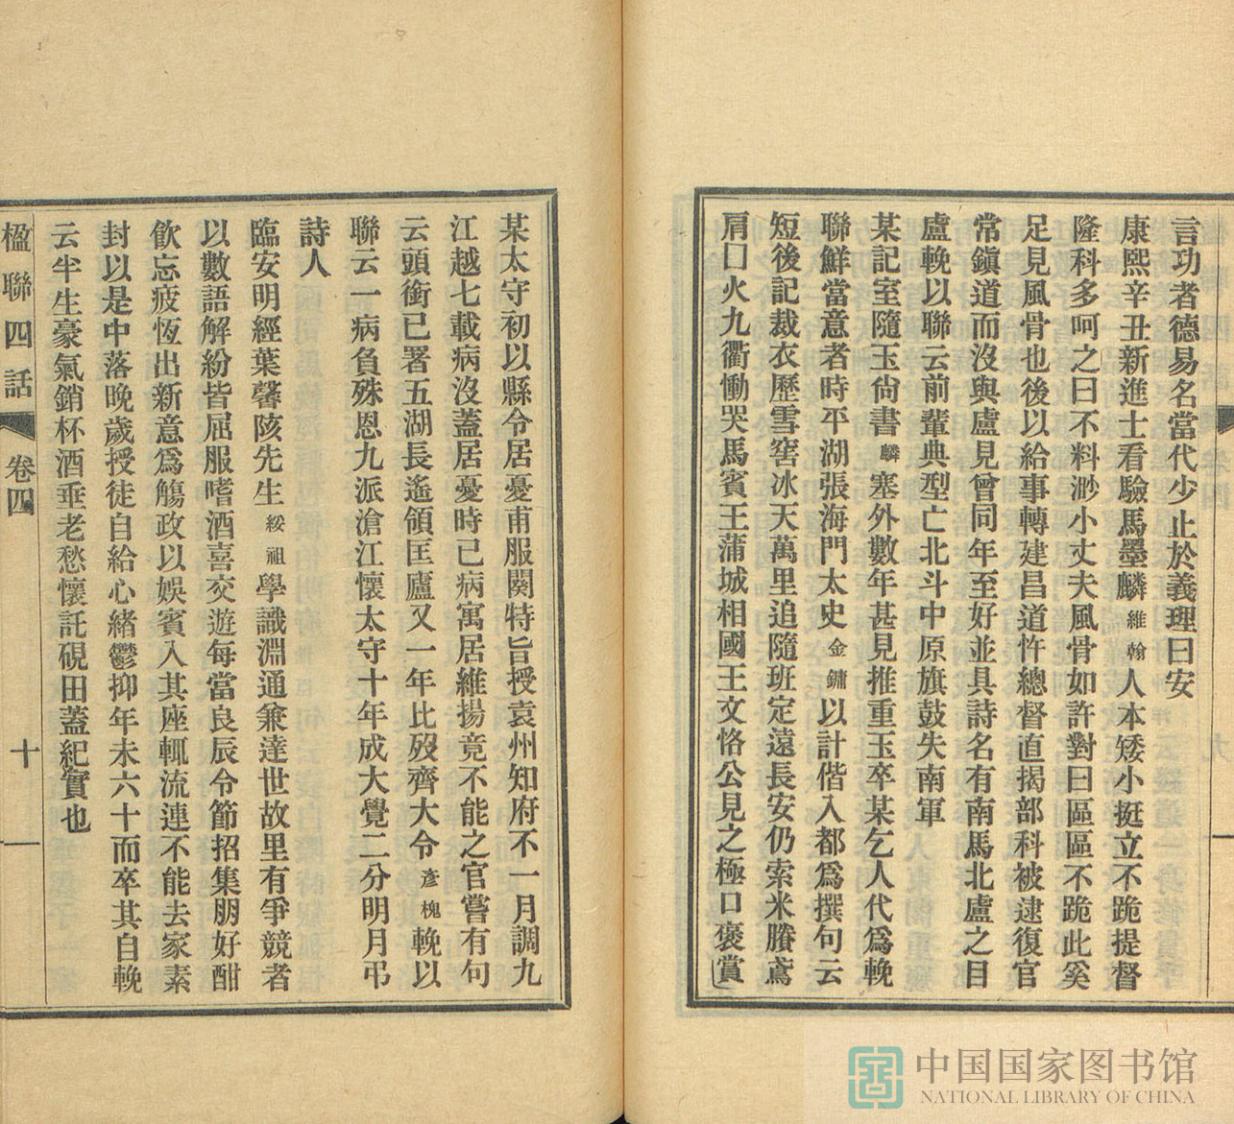 言功者德易名當代少止於義理曰安
康熙辛丑新進士看驗馬墨麟維翰人本矮小挺立不跪提督
隆科多呵之曰不料渺小丈夫風骨如許對曰區區不跪此奚
足見風骨也後以給事轉建昌道忤總督直揭部科被逮復官
常鎭道而沒與盧見曾同年至好並具詩名有南馬北盧之目
盧輓以聯云前輩典型亡北斗中原旗鼓失南軍
某記室隨玉尙書麟塞外數年甚見推重玉卒某乞人代爲輓
聯鮮當意者時平湖張海門太史金鏞以計偕入都爲撰句云
短後記裁衣歷雪窖冰天萬里追隨班定遠長安仍索米賸鳶
肩囗火九衢慟哭馬賓王蒲城相國王文恪公見之極口褒賞
某太守初以縣令居憂甫服闋特旨授袁州知府不一月調九
江越七載病沒蓋居憂時已病寓居維揚竟不能之官嘗有句
云頭銜已署五湖長遙領匡廬又一年比歿齊大令彥槐輓以
聯云一病負殊恩九派滄江懷太守十年成大覺二分明月弔
詩人
臨安明經葉馨陔先生綏祖學識淵通兼達世故里有爭競者
以數語解紛皆屈服嗜酒喜交遊每當良辰令節招集朋好酣
飮忘疲恆出新意爲觴政以娛賓入其座輒流連不能去家素
封以是中落晚歲授徒自給心緒鬱抑年未六十而卒其自輓
云半生豪氣銷杯酒垂老愁懷託硯田蓋紀實也
楹聯四話 卷四 十
中国国家图书馆
NATIONAL LIBRARY OF CHINA